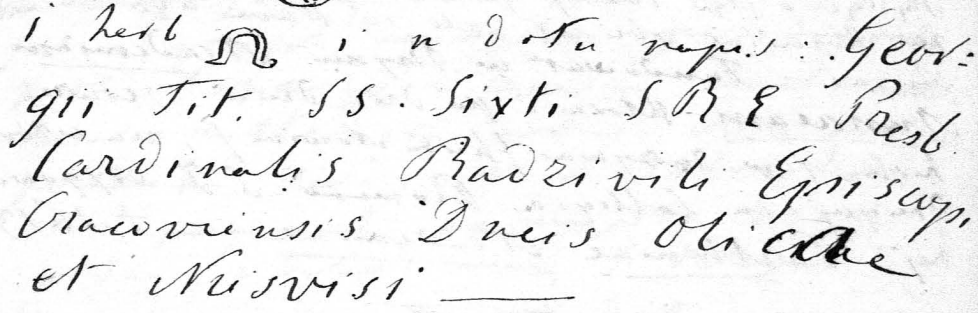 i herb i n dotu napis: Geor:
gii Tit. SS. Sixti S R E Presb
Cardinalis Radzivili Episcopi
Cracoviensis Ducis Olicae
et Niesvisi